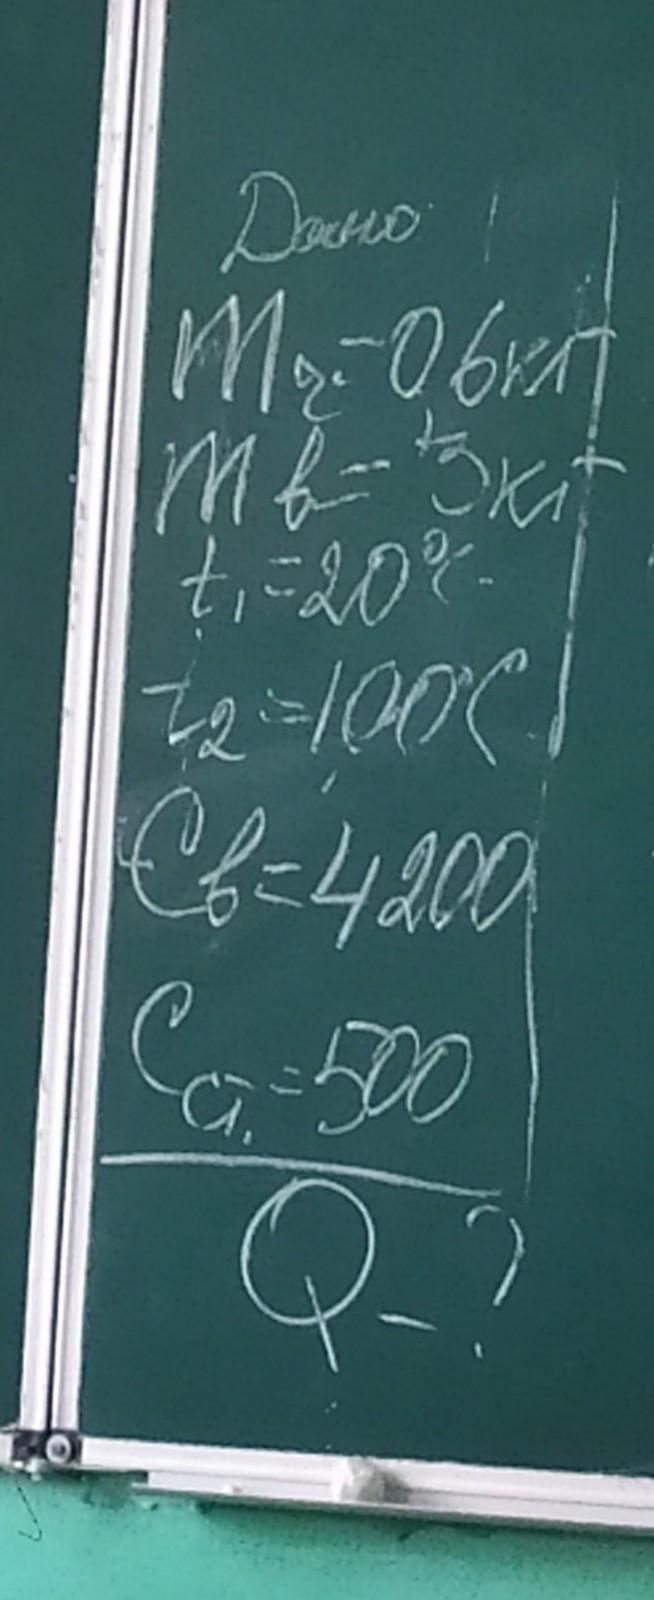 Дано
mч.=06кг
mв=3кг
t₁=20°C.
t₂=100°C
Cв=4200
Cст.=500
Q-?